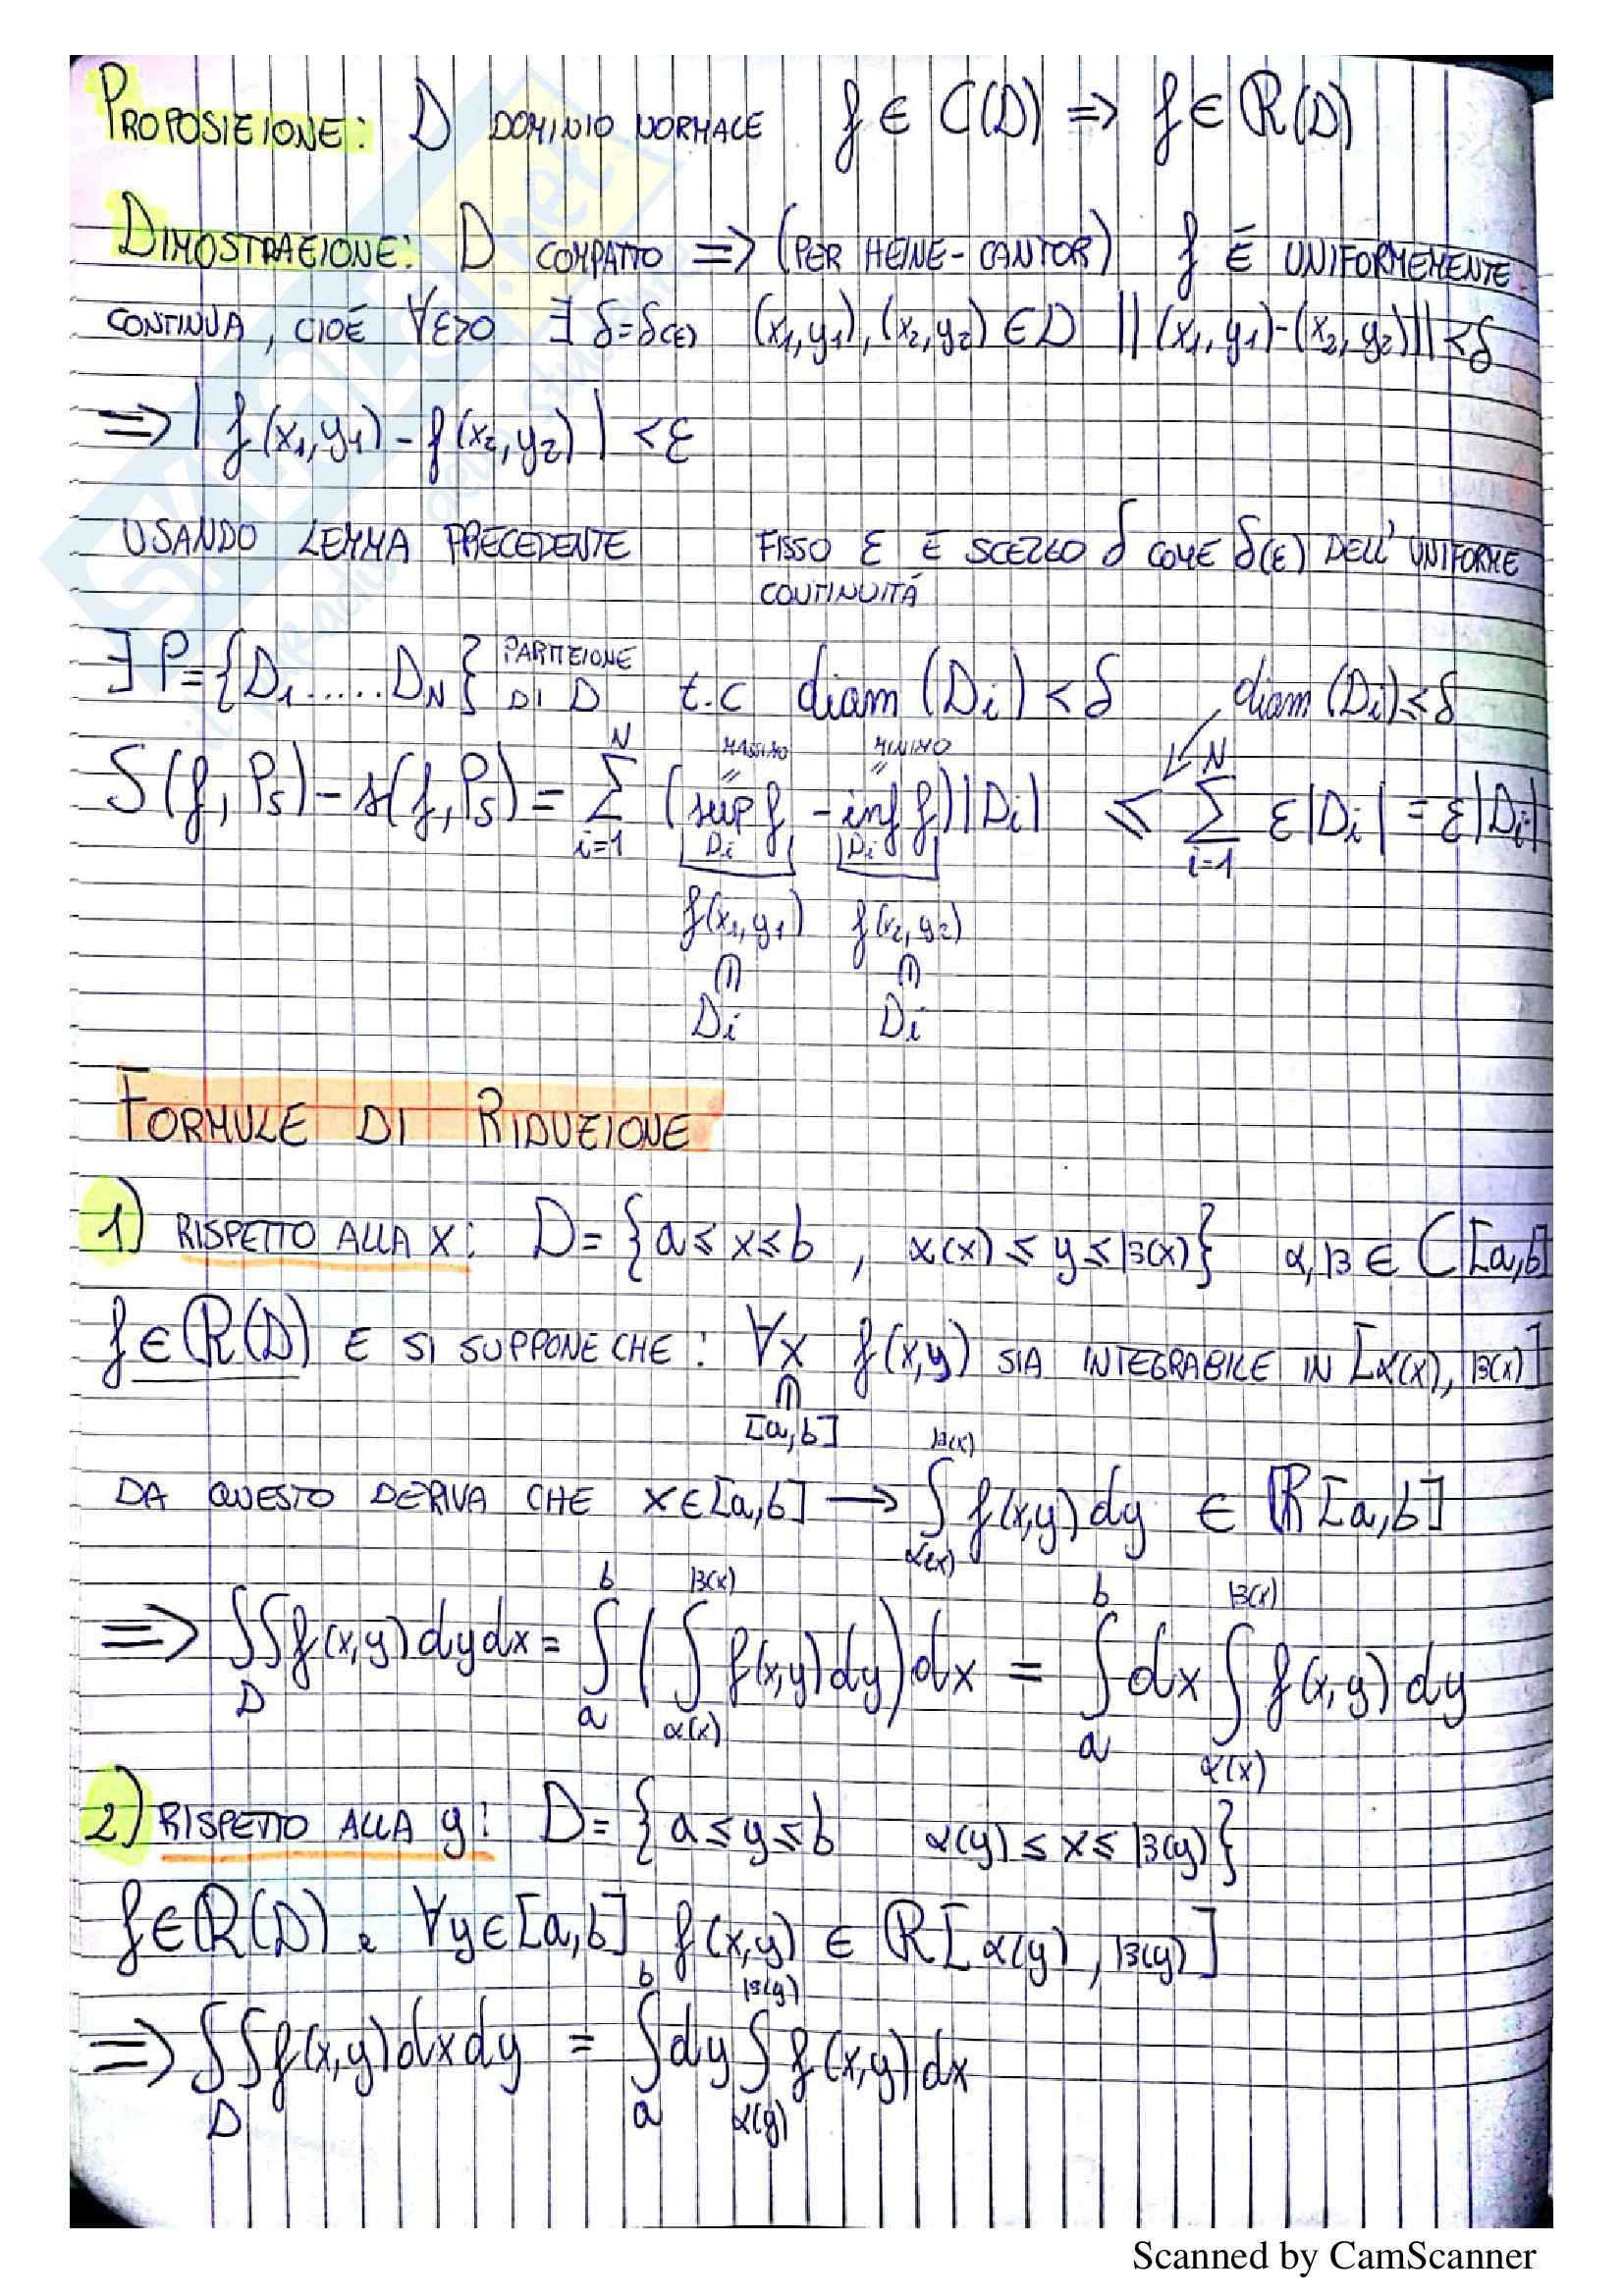 PROPOSIZIONE: D DOMINIO NORMALE f ∈ C(D) ⇒ f ∈ R(D)
DIMOSTRAZIONE: D COMPATTO ⇒ (PER HEINE-CANTOR) f É UNIFORMEMENTE
CONTINUA, CIOÉ ∀ε>0 ∃ δ=δ(ε) (x₁,y₁),(x₂,y₂) ∈ D ||(x₁,y₁)-(x₂,y₂)|| < δ
⇒ | f(x₁,y₁) - f(x₂,y₂) | < ε
USANDO LEMMA PRECEDENTE FISSO ε E SCELGO δ COME δ(ε) DELL'UNIFORME
CONTINUITÁ
∃ P={D₁.....D_N} PARTIZIONE DI D t.c diam (Di) < δ diam (Di) < δ
MASSIMO MINIMO
S(f,Pδ) - s(f,Pδ) = Σ_{i=1}^{N} (sup_{Di} f - inf_{Di} f)|Di| ≤ Σ_{i=1}^{N} ε|Di| = ε|Di|
f(x₁,y₁) f(x₂,y₂)
∈ ∈
Di Di
FORMULE DI RIDUZIONE
1) RISPETTO ALLA X: D = {a ≤ x ≤ b , α(x) ≤ y ≤ β(x)} α,β ∈ C[a,b]
f ∈ R(D) E SI SUPPONE CHE: ∀x f(x,y) SIA INTEGRABILE IN [α(x), β(x)]
∈
[a,b]
DA QUESTO DERIVA CHE x∈[a,b] → ∫_{α(x)}^{β(x)} f(x,y) dy ∈ R[a,b]
⇒ ∫∫_D f(x,y) dy dx = ∫_a^b (∫_{α(x)}^{β(x)} f(x,y) dy) dx = ∫_a^b dx ∫_{α(x)}^{β(x)} f(x,y) dy
2) RISPETTO ALLA y: D = {a ≤ y ≤ b α(y) ≤ x ≤ β(y)}
f ∈ R(D) e ∀y∈[a,b] f(x,y) ∈ R[α(y), β(y)]
⇒ ∫∫_D f(x,y) dx dy = ∫_a^b dy ∫_{α(y)}^{β(y)} f(x,y) dx
SKUOLA.net
il paradiso dello studente
Scanned by CamScanner